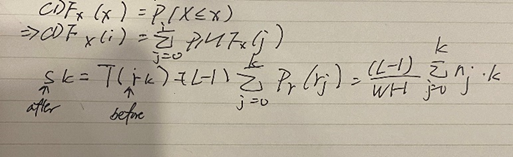 CDF_x(x) = P_r(X≤x)
⇒ CDF_x(i) = ∑_{j=0}^{i} PMF_x(j)
sk = T(rk) = (L-1) ∑_{j=0}^{k} P_r(rj) = (L-1)/WH ∑_{j=0}^{k} n_j · k
after before